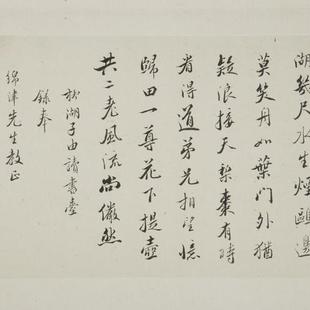 湖尺水生煙鷗邊
莫笑舟如葉門外猶
疑浪接天梨棗有時
省得道弟兄相望憶
歸田一尊花下提壺
共二老風流尚儼然
湖子由讀書臺
錄奉
綿津先生教正